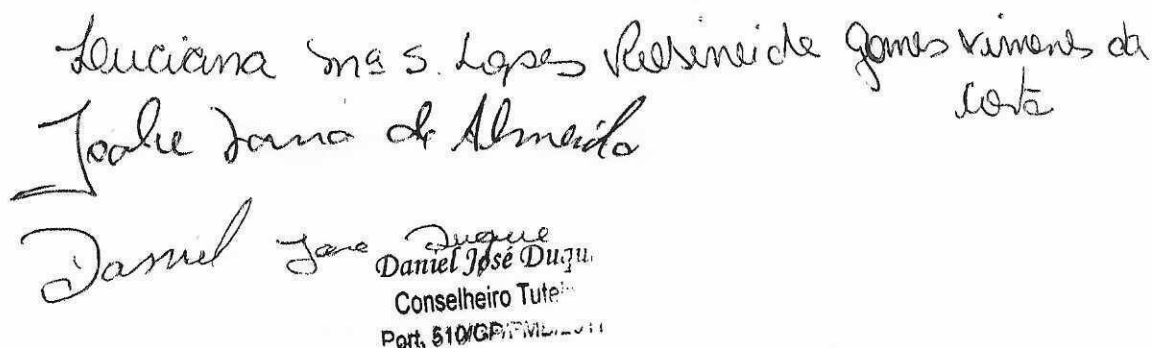 Luciana Mª S. Lopes Rosineide Gomes Ximenes da
Costa
de Almeida
Daniel José Duque
Daniel José Duqu
Conselheiro Tute
Port. 510/GP/PM